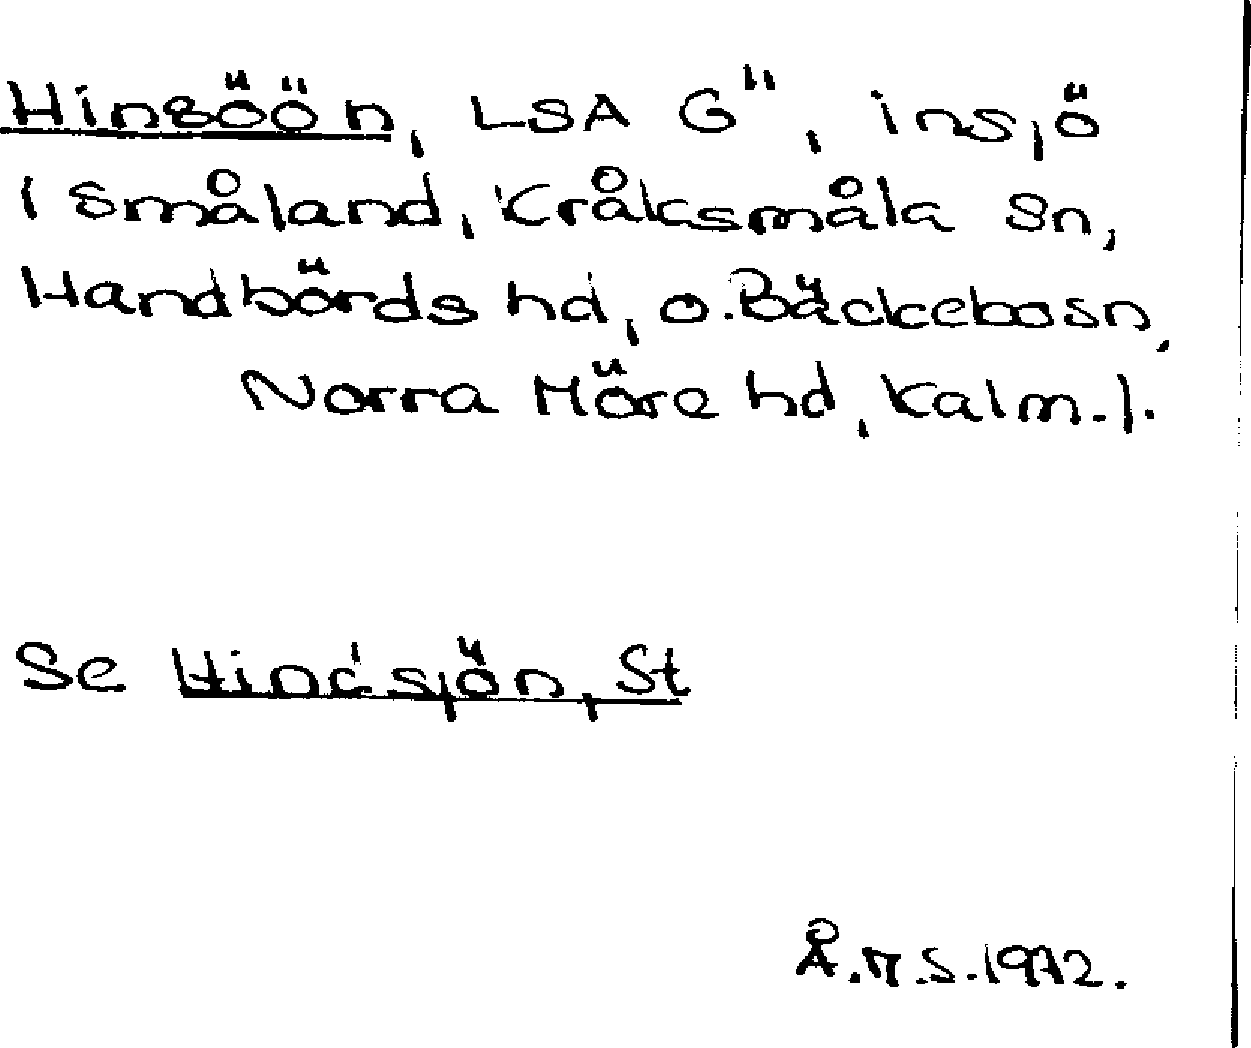 Hinsöön, LSA G", insjö
i Småland, Kråksmåla sn,
Handbörds hd, o. Bäckebo sn,
Norra Möre hd, Kalm. l.
Se Hindsjön, St
Å.M.S. 1972.